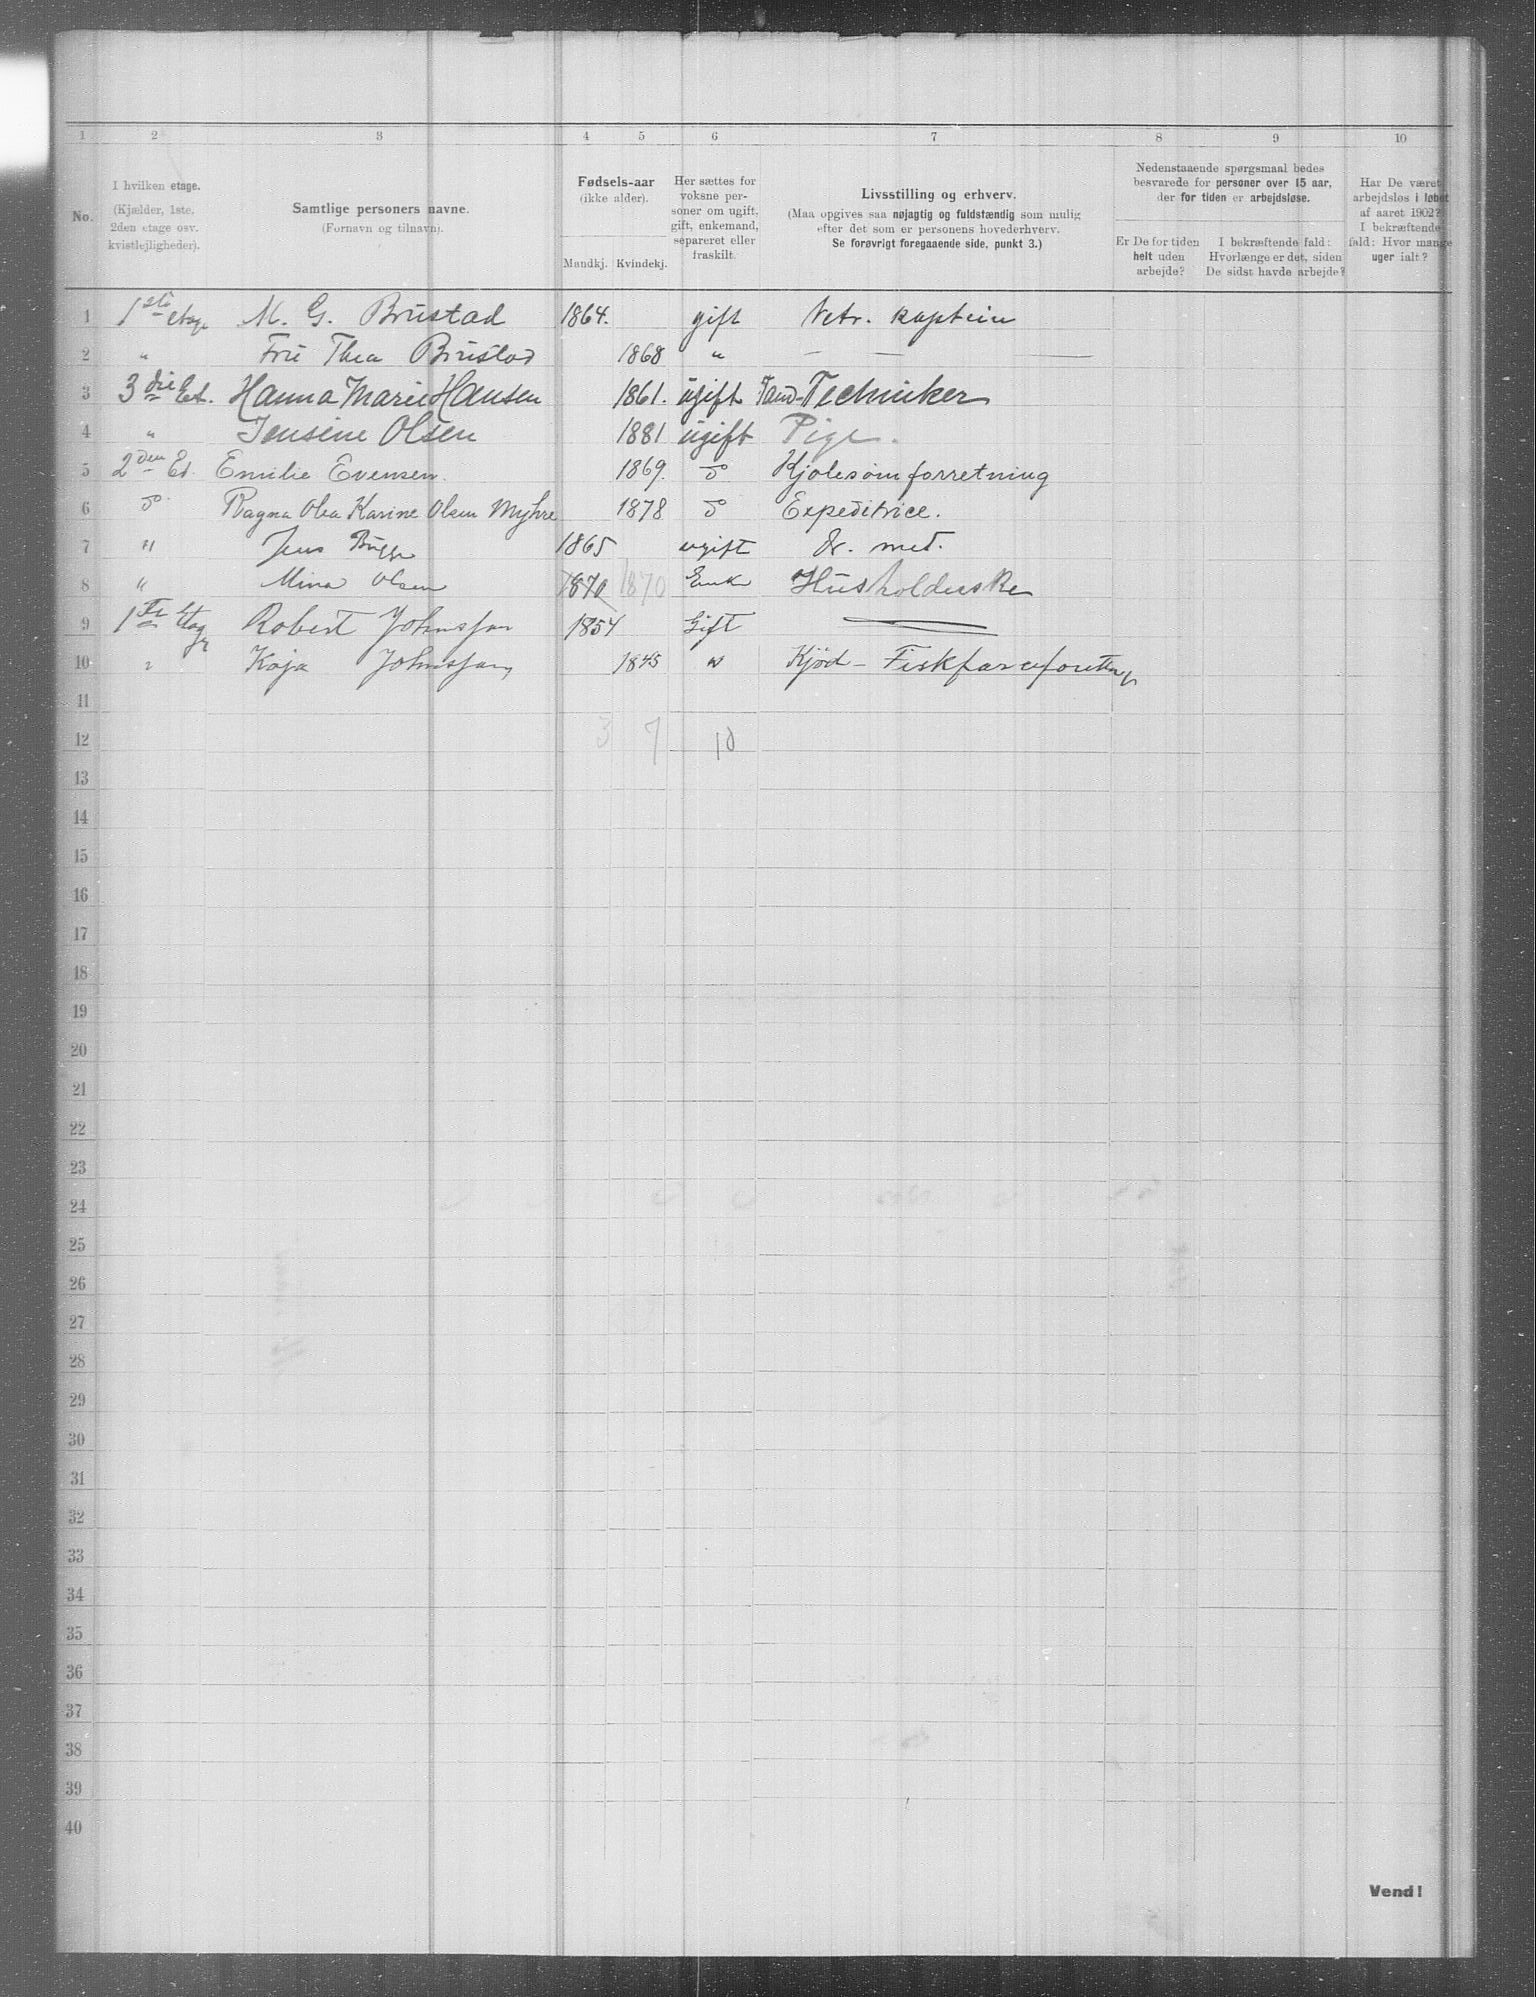 1 2 3 4 5 6 7 8 9 10
No.
I hvilken etage.
(Kjælder, 1ste.
2den etage osv.
kvistlejligheder).
Samtlige personers navne.
(Fornavn og tilnavn).
Fødsels-aar
(ikke alder).
Mandkj. Kvindekj.
Her sættes for
voksne per-
soner om ugift,
gift, enkemand,
separeret eller
fraskilt.
Livsstilling og erhverv.
(Maa opgives saa nøjagtig og fuldstændig som mulig
efter det som er personens hovederhverv.
Se forøvrigt foregaaende side, punkt 3.)
Nedenstaaende spørgsmaal bedes
besvarede for personer over 15 aar,
der for tiden er arbejdsløse.
Er De for tiden
helt uden
arbejde?
I bekræftende fald:
Hvorlænge er det, siden
De sidst havde arbejde?
Har De været
arbejdsløs i løbet
af aaret 1902?
I bekræftende
fald: Hvor mange
uger ialt?
1 1ste etage M. G. Brustad 1864. gift Vetr. kaptein
2 " Fru Thea Brustad 1868 " — — —
3 3die Et. Hanna Marie Hansen 1861. ugift Tand-Techniker
4 " Jensine Olsen 1881 ugift Pige.
5 2den Et. Emilie Evensen. 1869. do Kjolesømforretning
6 do Ragna Olea Karine Olsen Myhre 1878 do Expeditrice.
7 " Jens Bugge 1865 ugift dr. med.
8 " Mina Olsen 1870 1870 Enke Husholderske
9 1ste Etage Robert Johnssen 1854 Gift —
10 " Kaja Johnssen 1845 " Kjød – Fiskfarceforetng
11
12 3 7 10
13
14
15
16
17
18
19
20
21
22
23
24
25
26
27
28
29
30
31
32
33
34
35
36
37
38
39
40
Vend!